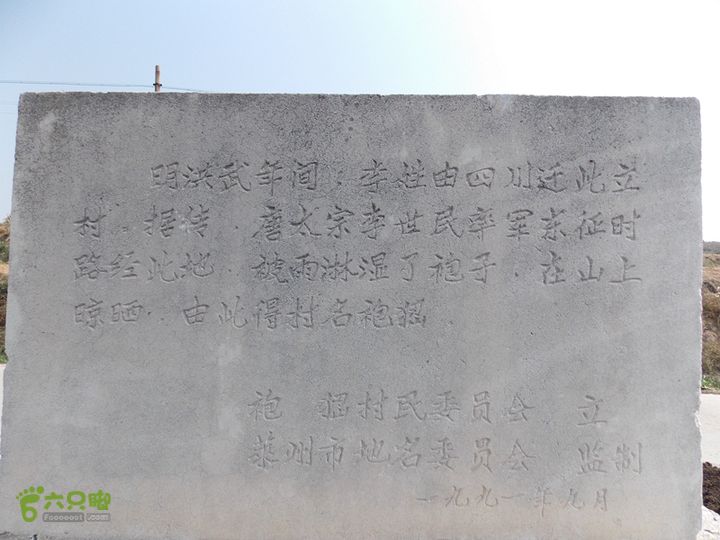 明洪武年间，李姓由四川迁此立
村，据传，唐太宗李世民率军东征时
路经此地，被雨淋湿了袍子，在山上
晾晒，由此得村名袍
袍 村民委员会 立
莱州市地名委员会 监制
一九九一年九月
六只脚
Foooooot.com